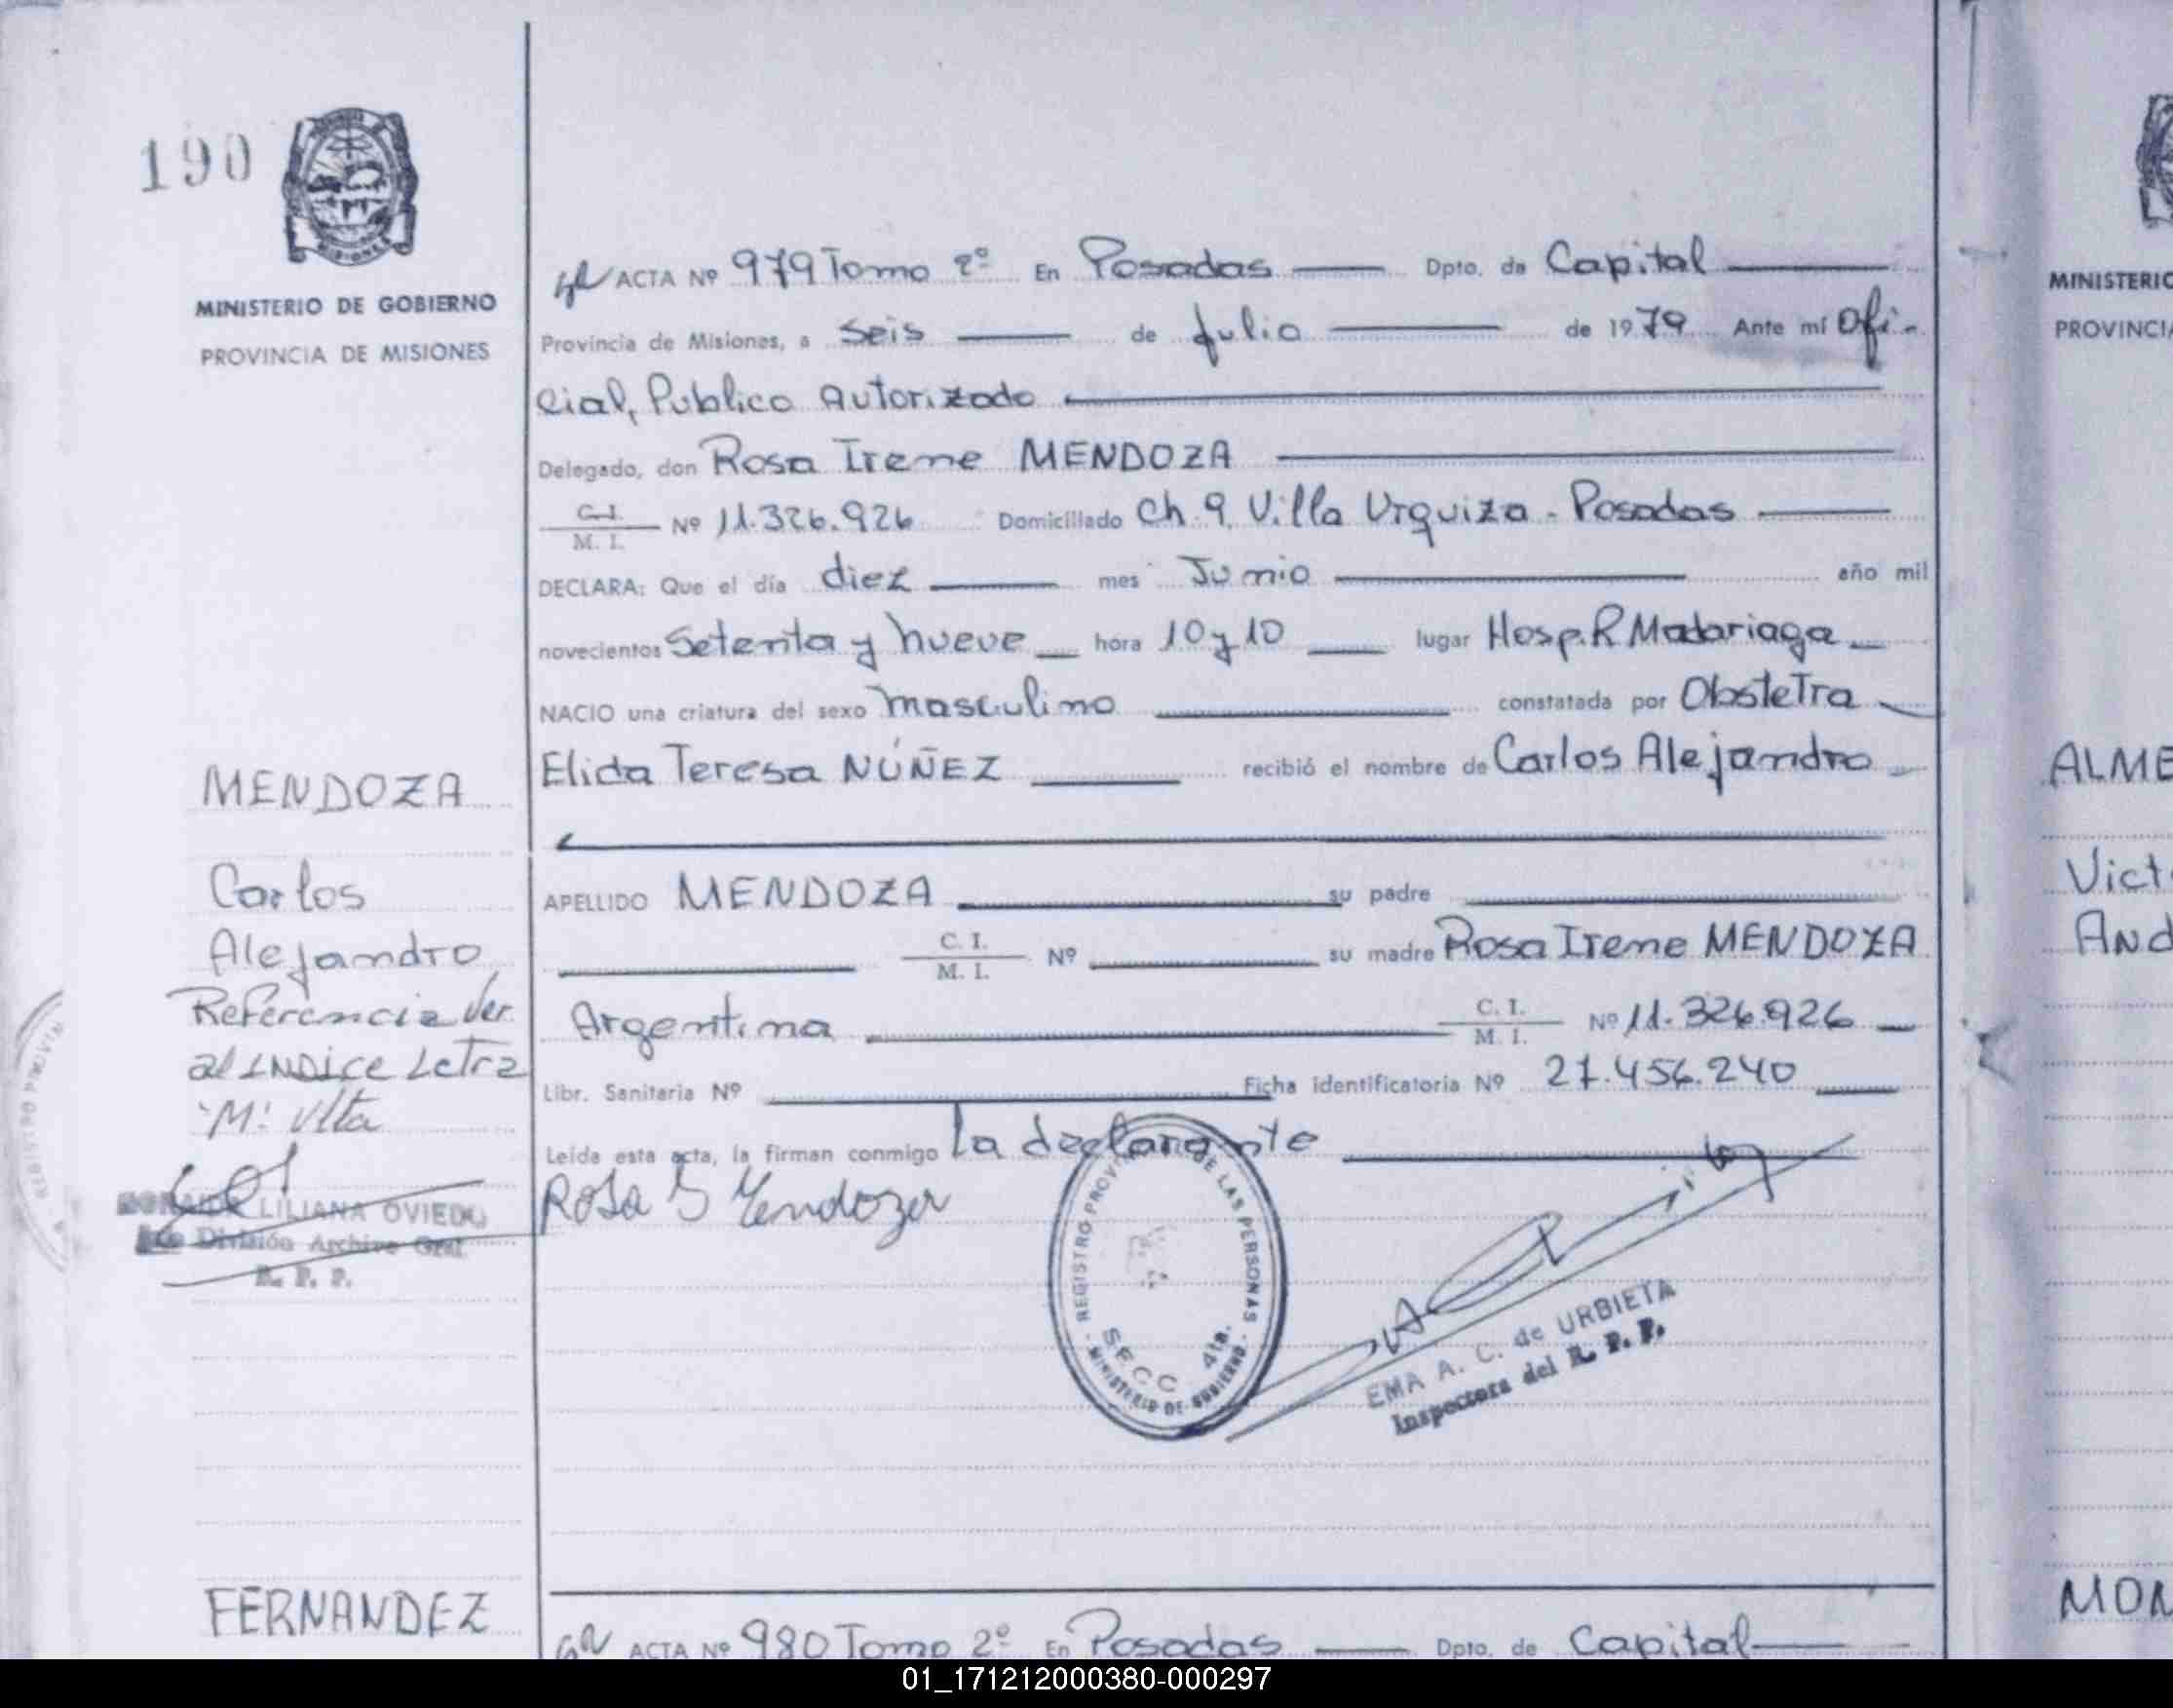 190
MINISTERIO DE GOBIERNO
PROVINCIA DE MISIONES
ACTA Nº 979 Tomo 2º En Posadas Dpto. de Capital
Provincia de Misiones, a Seis de Julio de 1979 Ante mí Ofi-
cial, Publico Autorizado
Delegado, don Rosa Irene MENDOZA
C. I.
M. I. Nº 11.326.926 Domiciliado Ch. 9. Villa Urquiza - Posadas
DECLARA: Que el día diez mes Junio año mil
novecientos Setenta y nueve hora 10 y 10 lugar Hosp. R Madariaga
NACIO una criatura del sexo masculino constatada por Obstetra
Elida Teresa NÚÑEZ recibió el nombre de Carlos Alejandro
APELLIDO MENDOZA su padre
C. I.
M. I. Nº su madre Rosa Irene MENDOZA
Argentina C. I.
M. I. Nº 11.326.926
Libr. Sanitaria Nº Ficha identificatoria Nº 27.456.240
Leída esta acta, la firman conmigo la declarante
MENDOZA
Carlos
Alejandro
Referencia Ver
al INDICE Letra
"M" Vlta
LILIANA OVIEDO
División Archivo Gral
R. P. P.
Rosa I Mendoza
REGISTRO PROVINCIAL DE LAS PERSONAS
SECC 4ta.
MINISTERIO DE GOBIERNO
EMA A. C. de URBIETA
Inspectora del R. P. P.
FERNANDEZ
ACTA Nº 980 Tomo 2º En Posadas Dpto. de Capital
MINISTERIO
PROVINCIA
ALME
Vict
And
MON
01_171212000380-000297